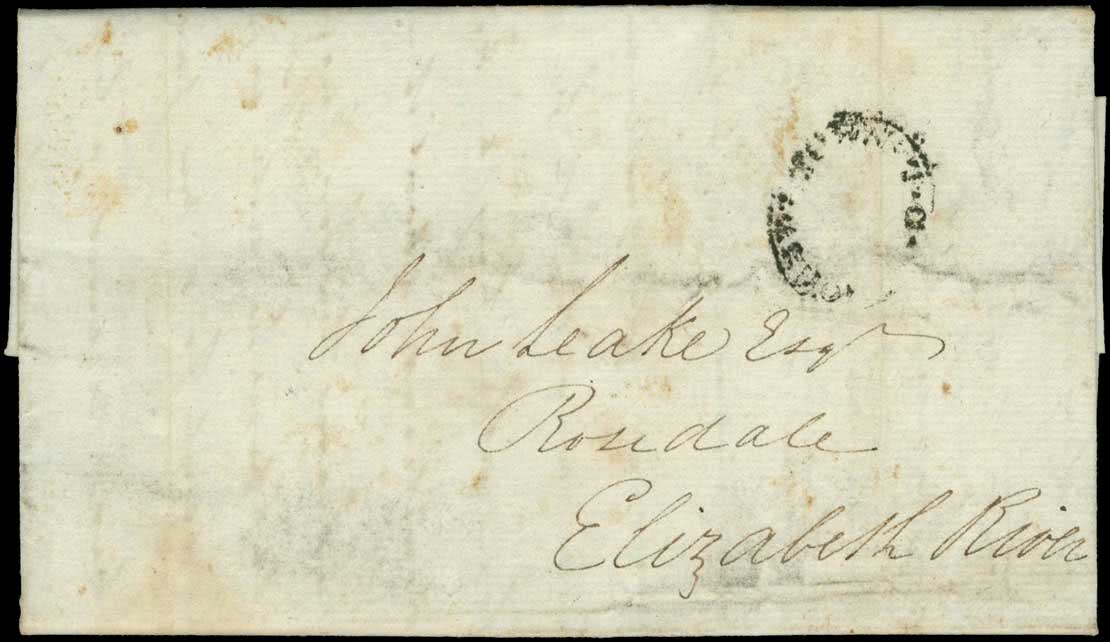 John Leake Esqr
Rosedale
Elizabeth River